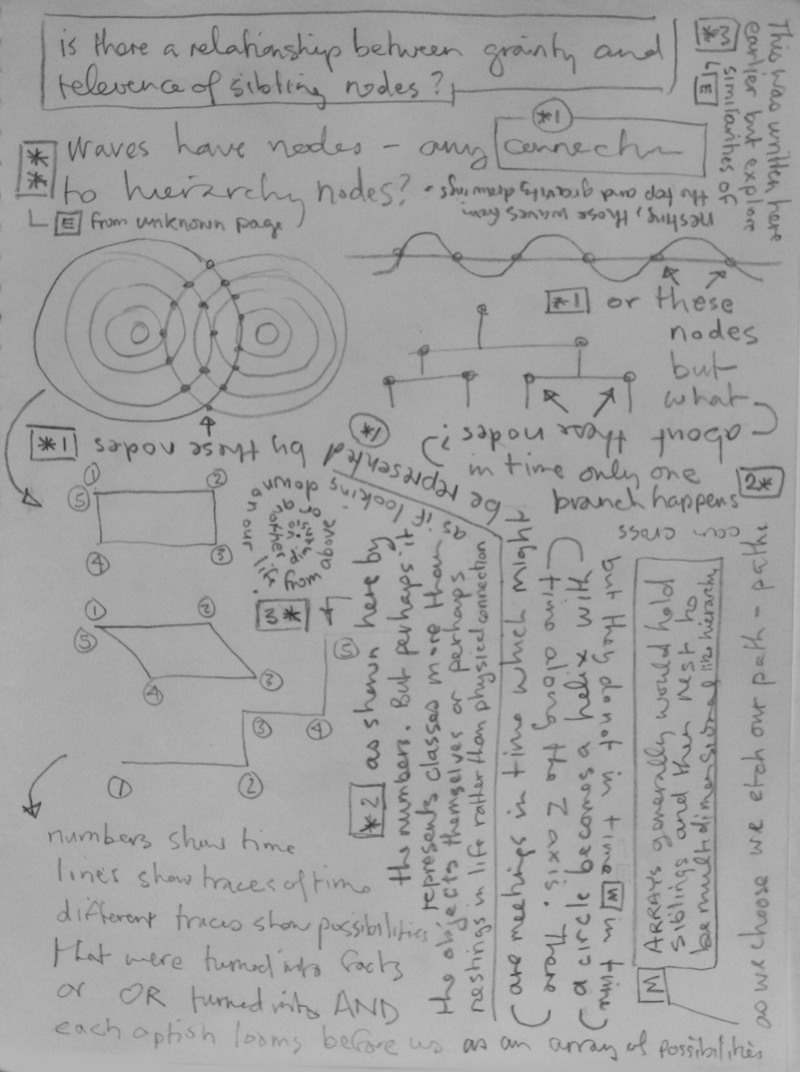 is there a relationship between gravity and
relevence of sibling nodes?
*M
└ E
This was written here
earlier but explore
similarities of
nesting, those waves from
the top and gravity drawings.
**
Waves have nodes - any
*1
to hierarchy nodes?
└ E from unknown page
*1 or these
nodes
but
what
about these nodes?
in time only one
branch happens
2*
*1 by these nodes
*1
be represented
as if looking
down
above
on our
life
from
another
3*
① ② ③ ④ ⑤
① ② ③ ④ ⑤
① ② ③ ④ ⑤
*2 as shown here by
the numbers. But perhaps it
represents classes more than
the objects themselves or perhaps
nestings in life rather than physical connection
(are meetings in time which might
time along the Z axis.
a circle becomes a helix with
but they do not in time W in time
M ARRAYS generally would hold
siblings and then nest to
be multidimensional like hierarchy
as we choose we etch our path - paths
can cross
numbers show time
lines show traces of time
different traces show possibilities
that were turned into facts
or OR turned into AND
each option looms before us as an array of possibilities